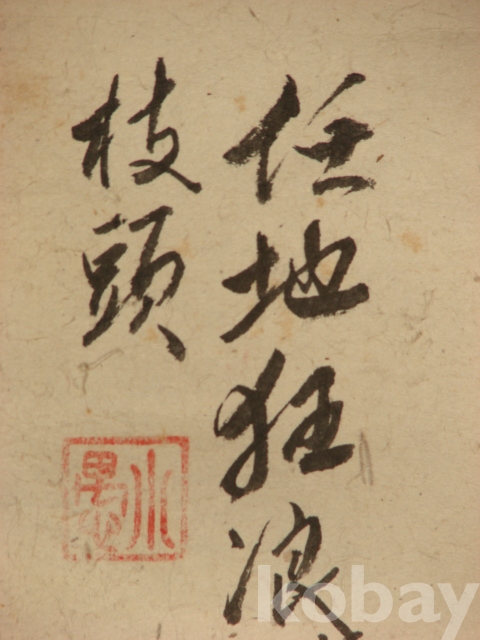 任地狂浪
枝頭
小愚
kobay